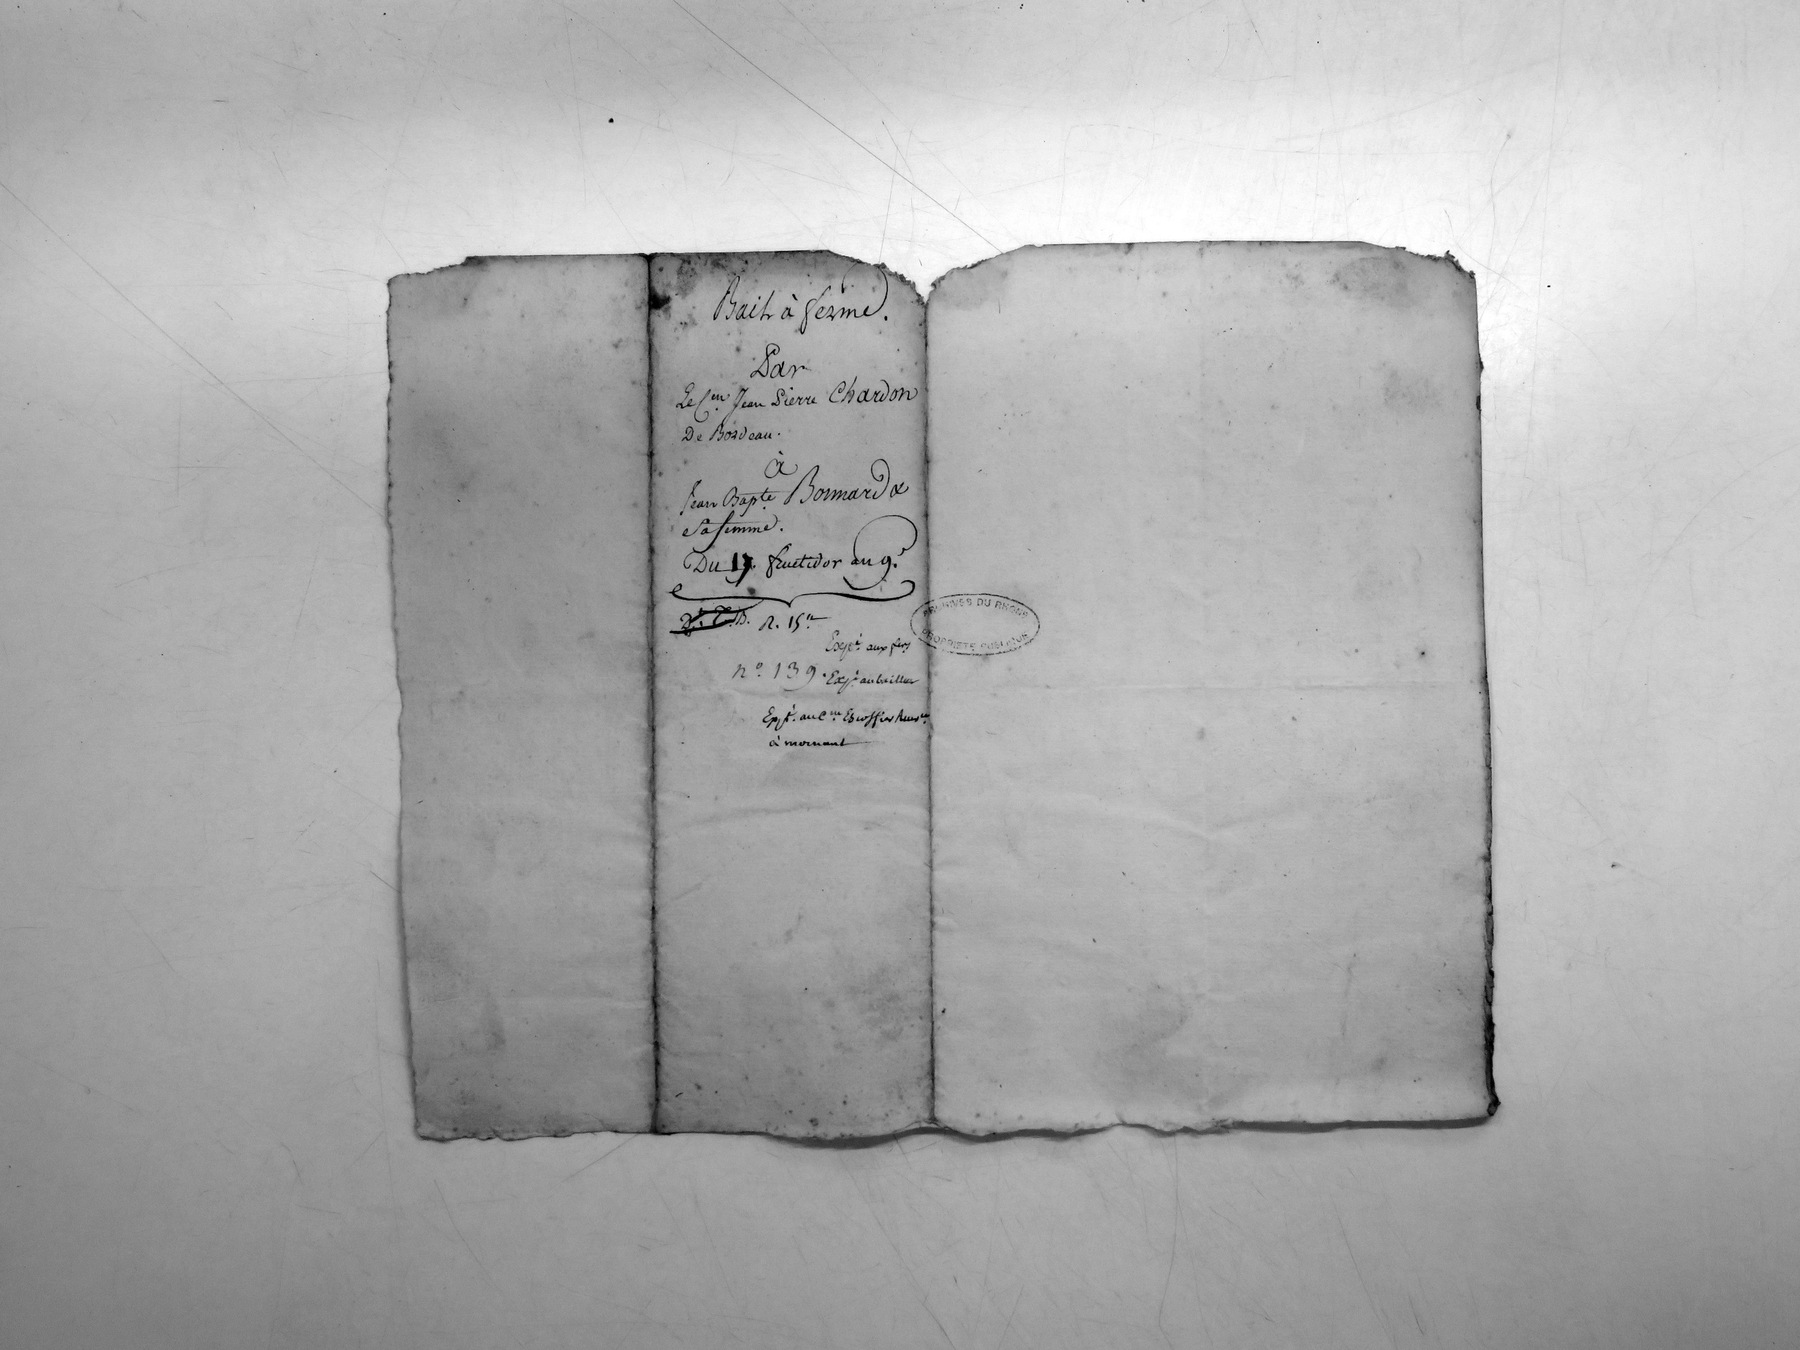 Bail à ferme.
Par
Le Cen Jean Pierre Chardon
De Bordeau.
à
Jean Bapte Bonnard &
Sa femme.
Du 17 fructidor an 9.
R. 15
Expt aux fers
n° 139. Expt au bailleur
Expt. au Cen Escoffier
à mornant
ARCHIVES DU RHÔNE
PROPRIÉTÉ PUBLIQUE